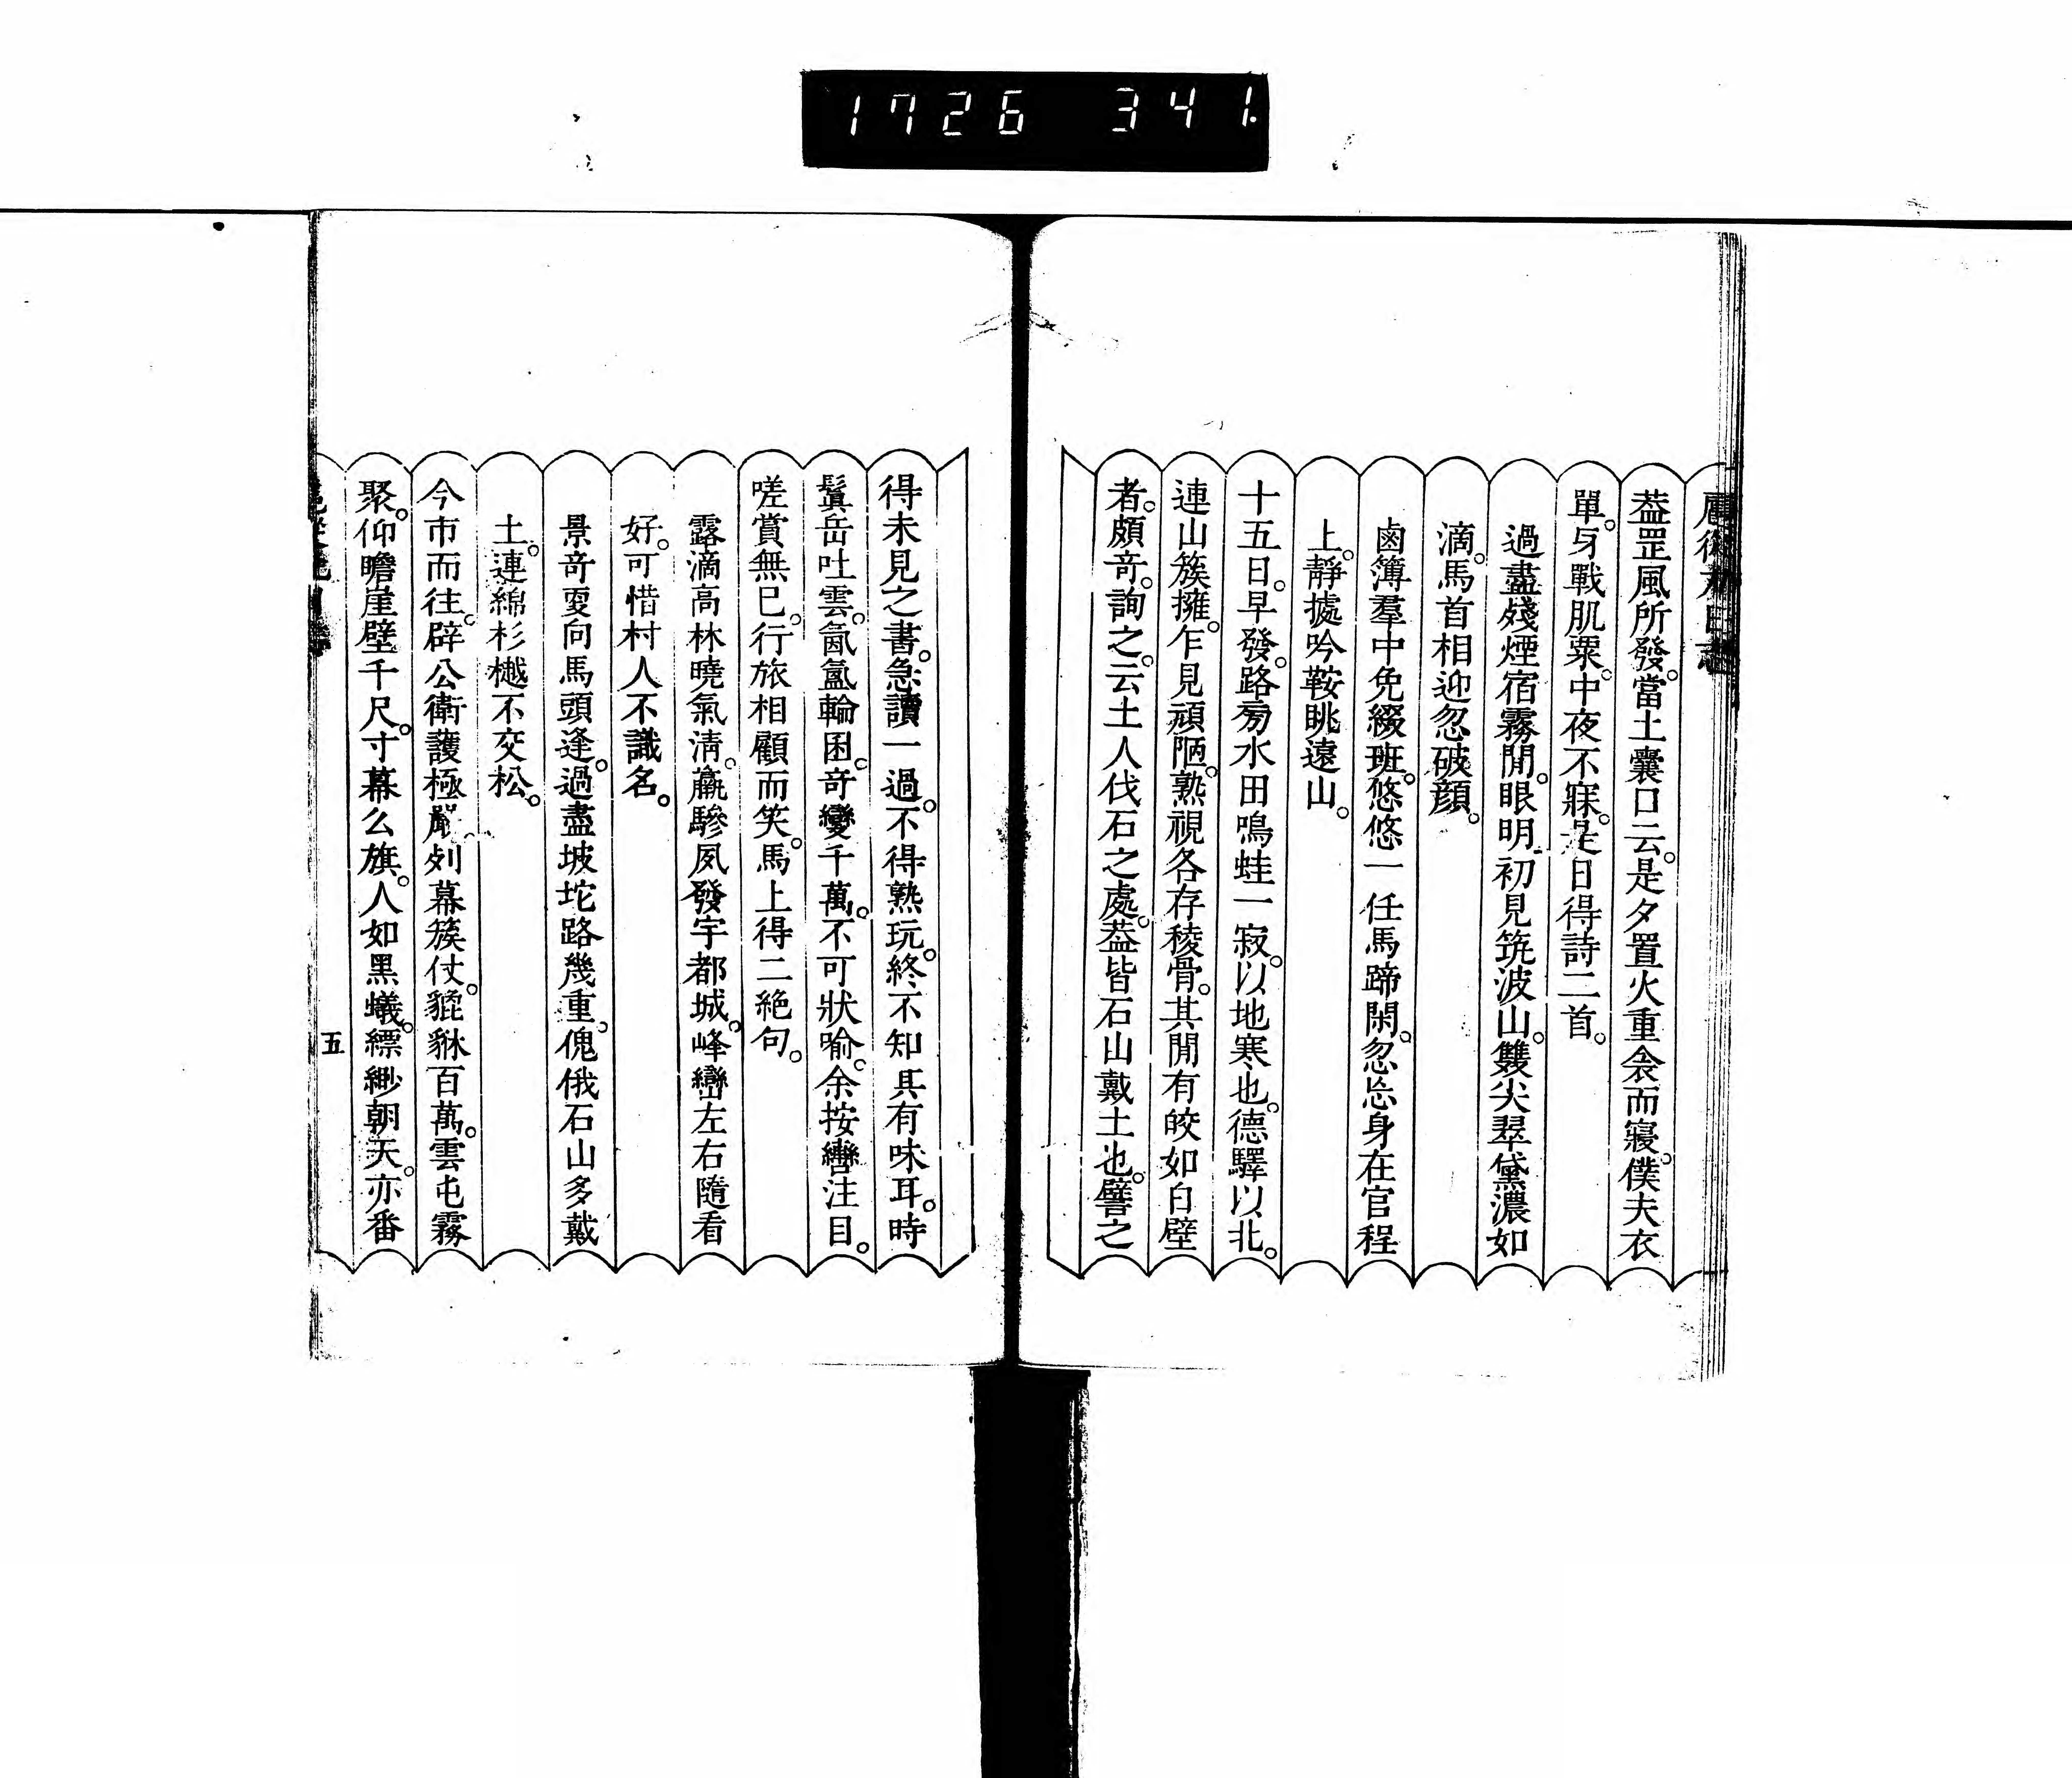 1726 341.
葢罡風所發。當土囊口云。是夕置火重衾而寢。僕夫衣
單。身戰肌粟。中夜不寐。是日得詩二首。
過盡殘煙宿霧閒。眼明初見筑波山。雙尖翠黛濃如
滴。馬首相迎忽破顔。
鹵簿羣中免綴班。悠悠一任馬蹄閑。忽忘身在官程
上。靜據吟鞍眺遠山。
十五日。早發。路旁水田鳴蛙一寂。以地寒也。德驛以北。
連山簇擁。乍見頑陋。熟視各存稜骨。其閒有皎如白壁
者。頗竒。詢之。云土人伐石之處。葢皆石山戴土也。譬之
得未見之書。急讀一過。不得熟玩。終不知其有味耳。時
鬒岳吐雲。氤氳輪囷。竒變千萬。不可狀喻。余按轡注目。
嗟賞無已。行旅相顧而笑。馬上得二絶句。
露滴高林曉氣淸。驂夙發宇都城。峰巒左右隨看
好。可惜村人不識名。
景竒耎向馬頭逢。過盡坡坨路幾重。傀俄石山多戴
土。連綿杉樾不交松。
今市而往。辟公衛護極嚴。列幕簇仗。貔貅百萬。雲屯霧
聚。仰瞻崖壁千尺。寸幕么旗。人如黑蟻。縹緲朝天。亦番
五